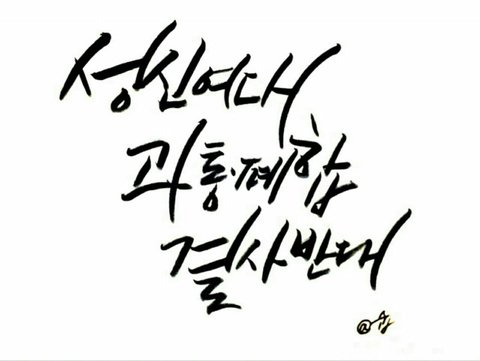 성신여대
과통·폐합
결사반대